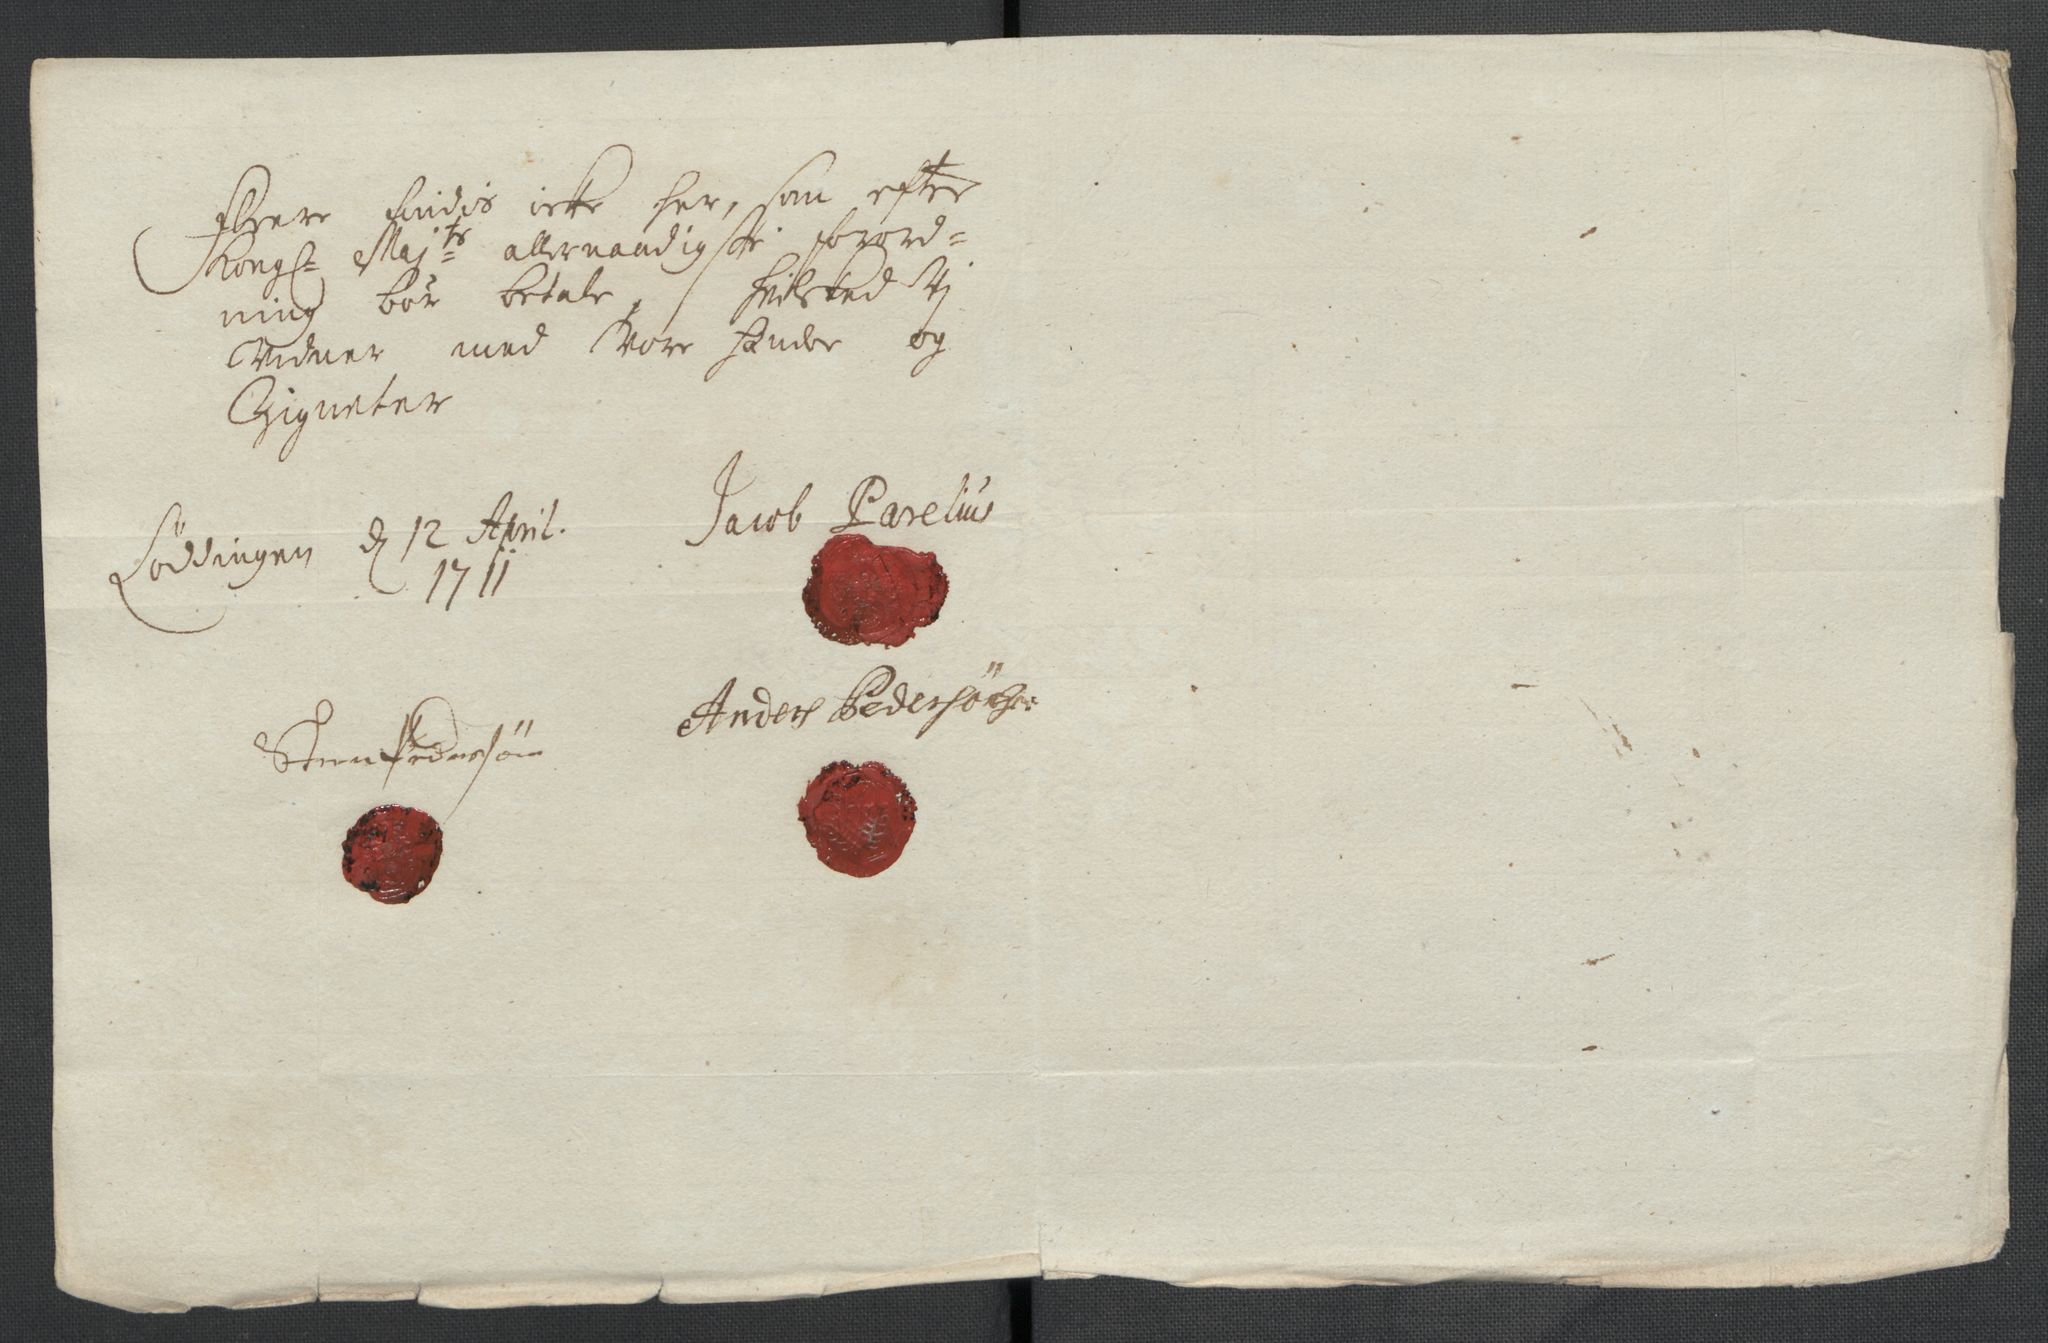 Fleere findis icke her, som efter
Kongl: Maj:ts allernaadigste forord=
ning bør betale, hvilcked Vj
Vidner med Vore Hænder og
Zigneter
Løddingen d 12 April.
1711
Jacob Parelius
Anders Pedersøn
Steen Pedersøn